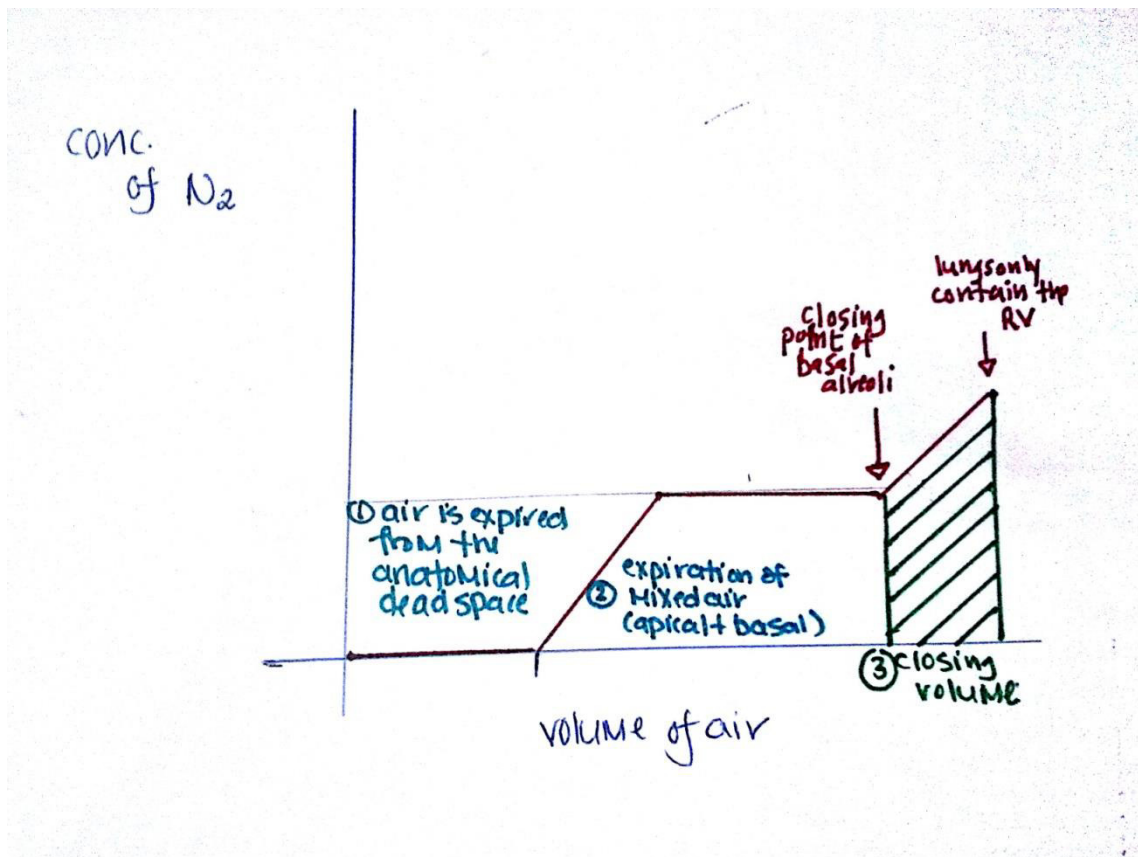 conc.
of N₂
lungsonly
contain the
RV
closing
point of
basal
alveoli
① air is expired
from the
anatomical
dead space
② expiration of
Mixed air
(apical + basal)
③ closing
volume
volume of air